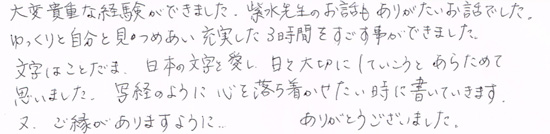 大変貴重な経験ができました。紫水先生のお話もありがたいお話でした。
ゆっくりと自分と見つめあい充実した3時間をすごす事ができました。
文字はことだま、日本の文字を愛し、日と大切にしていこうとあらためて
思いました。写経のように心を落ち着かせたい時に書いていきます。
又、ご縁がありますように‥ ありがとうございました。